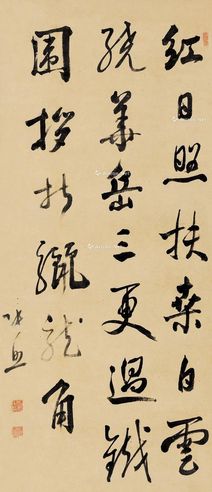 紅日照扶桑白雲
繞華岳三更過鐵
圍拶折驪龍角